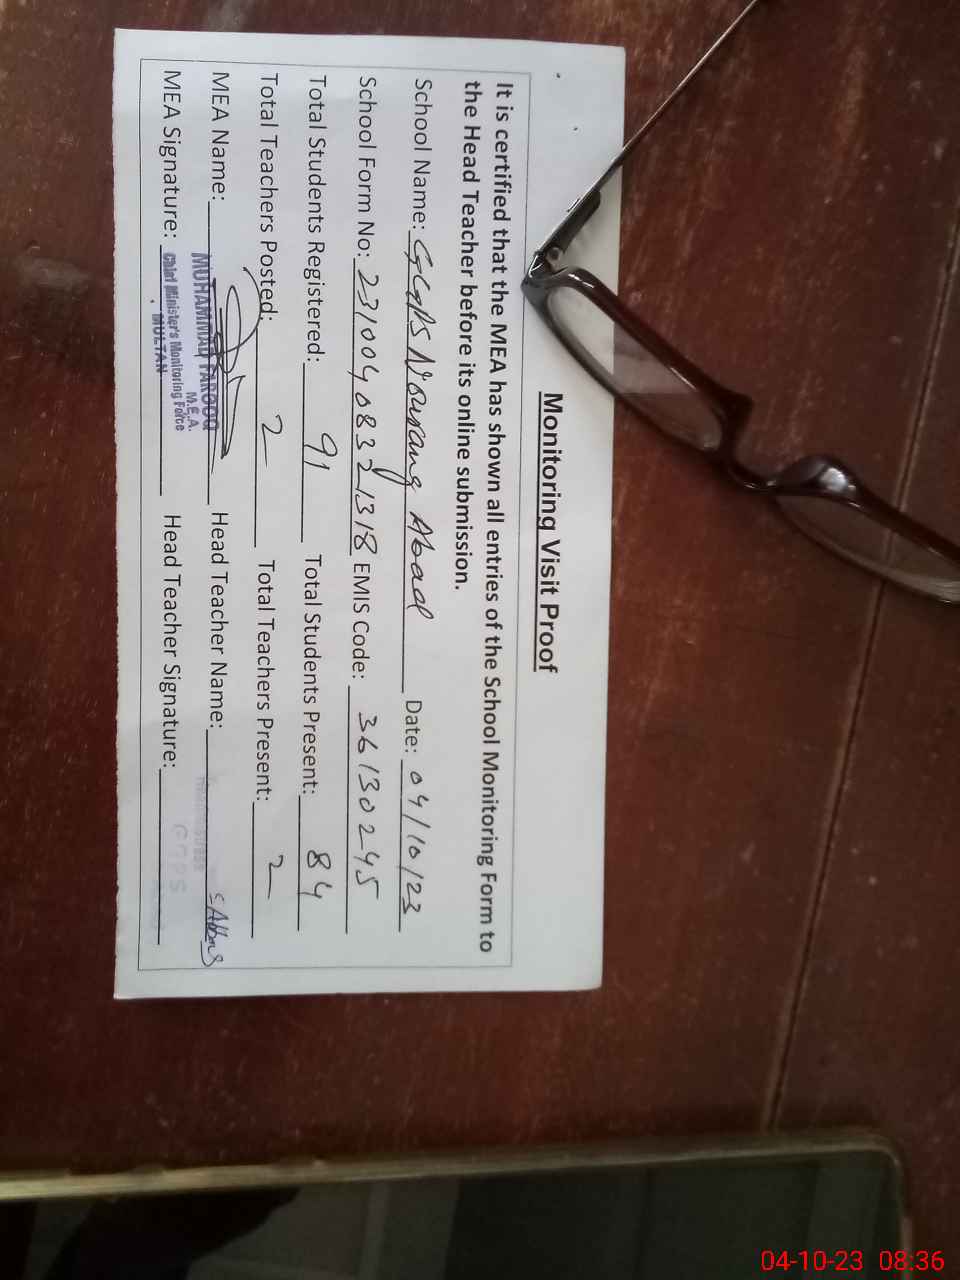 Monitoring Visit Proof
It is certified that the MEA has shown all entries of the School Monitoring Form to
the Head Teacher before its online submission.
School Name: GGPS Nourang Abad Date: 04/10/23
School Form No: 23100408321318 EMIS Code: 36130245
Total Students Registered: 91 Total Students Present: 84
Total Teachers Posted: 2 Total Teachers Present: 2
MEA Name: Head Teacher Name:
MUHAMMAD FAROOQ
M.E.A.
MEA Signature: Head Teacher Signature:
Chief Minister's Monitoring Force
MULTAN
04-10-23 08:36